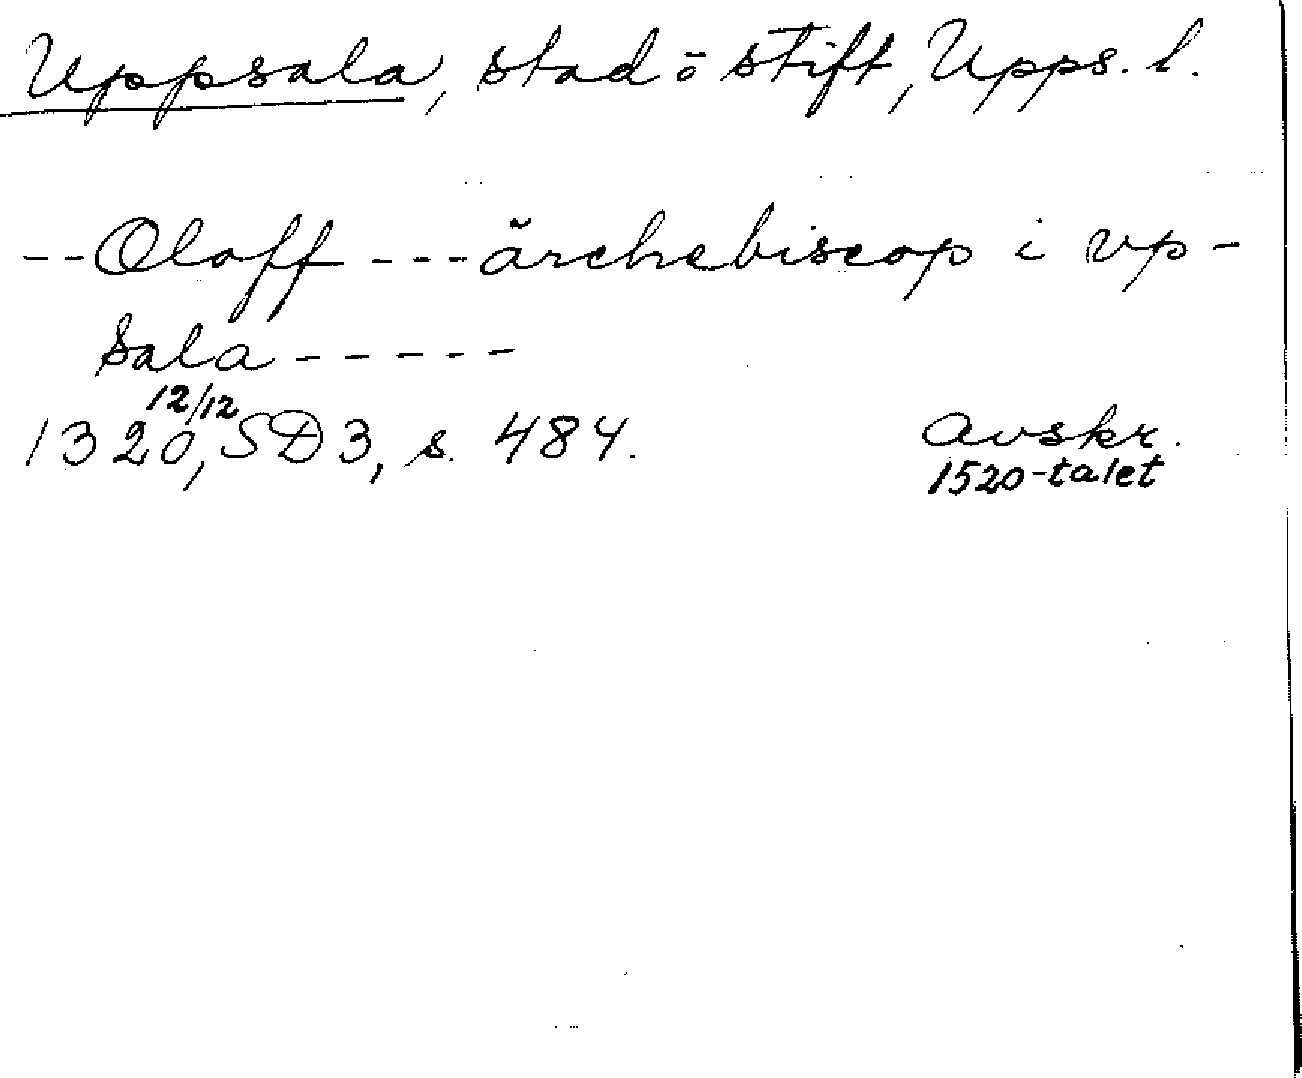 Uppsala, stad o stift, Upps. l.
-- Oloff --- ärchebiscop i vp-
sala -----
12/12
1320, SD 3, s. 484. avskr.
1520-talet